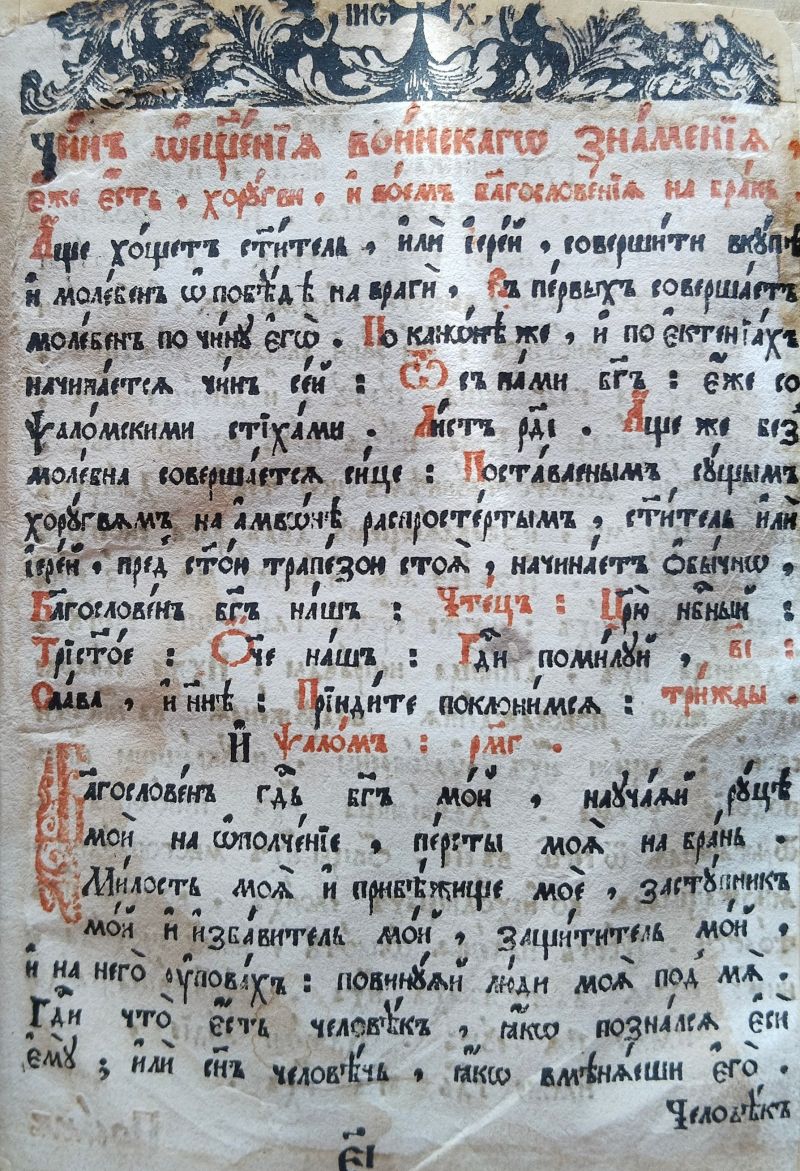 І҆ИС Х,
Чи́нъ ѡ҆сщ҃е́нїѧ вои́нскагѡ зна́менїѧ,
є҆́же є҆́сть, хорꙋ́гви, и҆ во́емъ бл҃гослове́нїѧ на бра́нь.
А҆́ще хо́щетъ ст҃и́тель, и҆лѝ і҆ере́й, соверши́ти вкꙋ́пѣ
и҆ моле́бенъ ѡ҆ побѣ́дѣ на врагѝ, въ пе́рвыхъ соверша́етъ
моле́бенъ по чи́нꙋ є҆гѡ̀. По канѡ́нѣ же, и҆ по є҆ктенїа́хъ
начина́етсѧ чи́нъ се́й: Ѿ съ на́ми бг҃ъ: є҆́же со
ѱало́мскими стїха́ми. Ли́стъ рд҃і. А҆́ще же без̾
моле́бна соверша́етсѧ си́це: Поста́вленымъ сꙋ́щымъ
хорꙋ́гвѧмъ на а҆мвѡ́нѣ распросте́ртымъ, ст҃и́тель и҆лѝ
і҆ере́й, пред̾ ст҃о́й трапе́зой стоѧ̀, начина́етъ ѻ҆бы́чнѡ,
Бл҃гослове́нъ бг҃ъ на́шъ: Чте́цъ: Цр҃ю̀ нб҃ный:
Трист҃о́е: Ѻ҆́ч҃е на́шъ: Гд҃и поми́лꙋй, в҃і:
Сла́ва, и҆ нн҃ѣ: Прїиди́те поклони́мсѧ: три́жды.
И҆ ѱало́мъ: рм҃г.
Бл҃гослове́нъ гд҃ь бг҃ъ мо́й, наꙋча́ѧй рꙋ́цѣ
мои̑ на ѡ҆полче́нїе, пе́рсты моѧ̀ на бра́нь.
Ми́лость моѧ̀ и҆ прибѣ́жище моѐ, застꙋ́пникъ
мо́й и҆ и҆зба́витель мо́й, защи́титель мо́й,
и҆ на него̀ ᲂу҆пова́хъ: повинꙋ́ѧй лю́ди моѧ̀ под̾ мѧ̀.
Гд҃и что̀ є҆́сть человѣ́къ, ꙗ҆́кѡ позна́лсѧ є҆сѝ
є҆мꙋ̀; и҆лѝ сн҃ъ человѣ́чь, ꙗ҆́кѡ вмѣнѧ́еши є҆го̀.
Человѣ́къ
є҃і